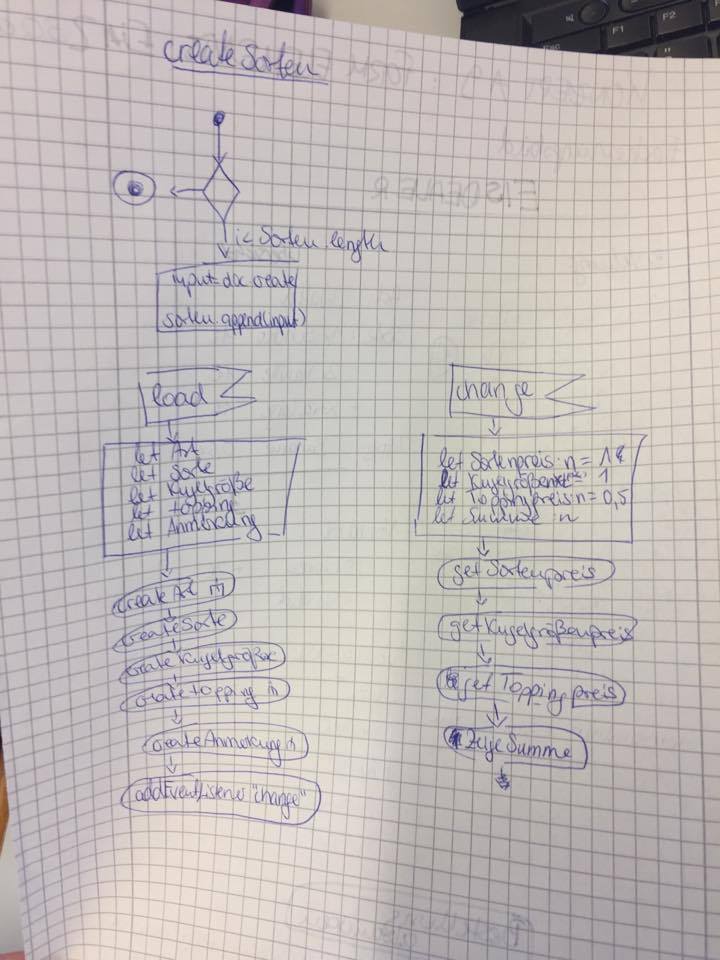 createSorten
i< Sorten.length
input=doc.create
sorten.append(input)
load
let Art
let Sorte
let Kugelgröße
let Topping
let Anmerkung
createArt
createSorte
createKugelgröße
createTopping
createAnmerkung
addEventListener "change"
change
let Sortenpreis: n = 1€
let Kugelgrößen 1
let Toppingpreis: n = 0,5
let Summe : n
getSortenpreis
getKugelgrößenpreis
get Toppingpreis
Zeige Summe
EISDEALER
F1
F2